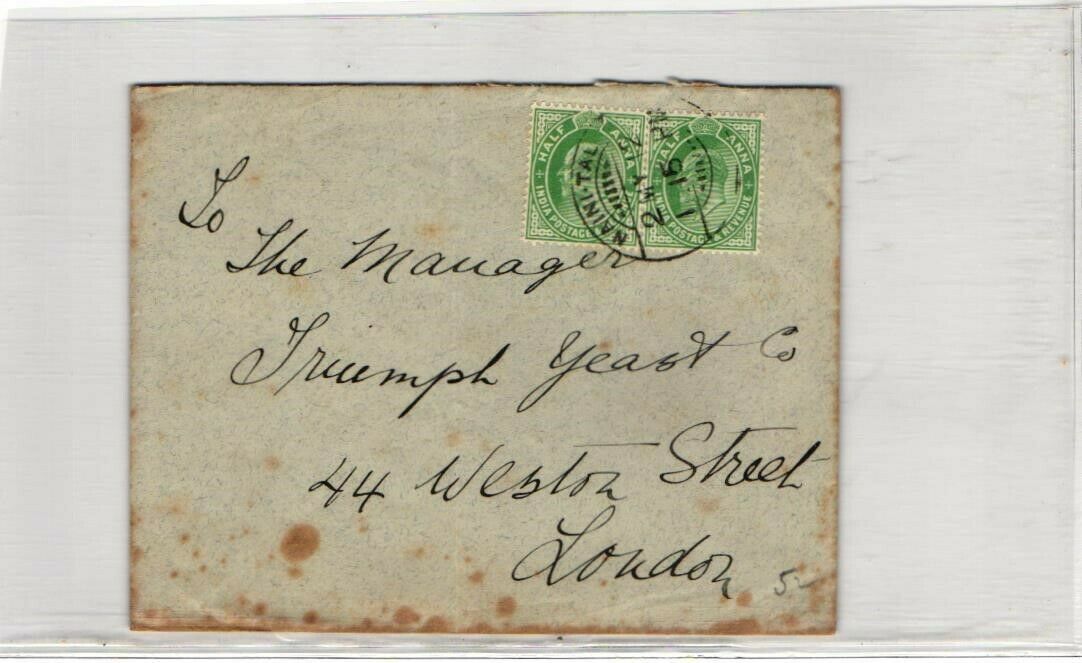 HALF ANNA
INDIA POSTAGE
HALF ANNA
INDIA POSTAGE & REVENUE
NAINI-TAL
2 MY
1-15 PM
To
The Manager
Triumph Yeast Co
44 Weston Street
London
5